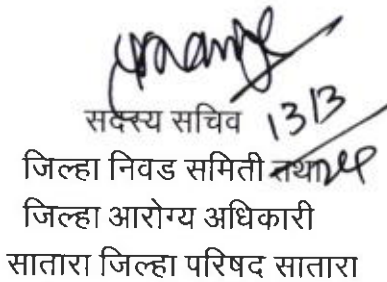 सदस्य सचिव 13/3
जिल्हा निवड समिती तथा
जिल्हा आरोग्य अधिकारी
सातारा जिल्हा परिषद सातारा